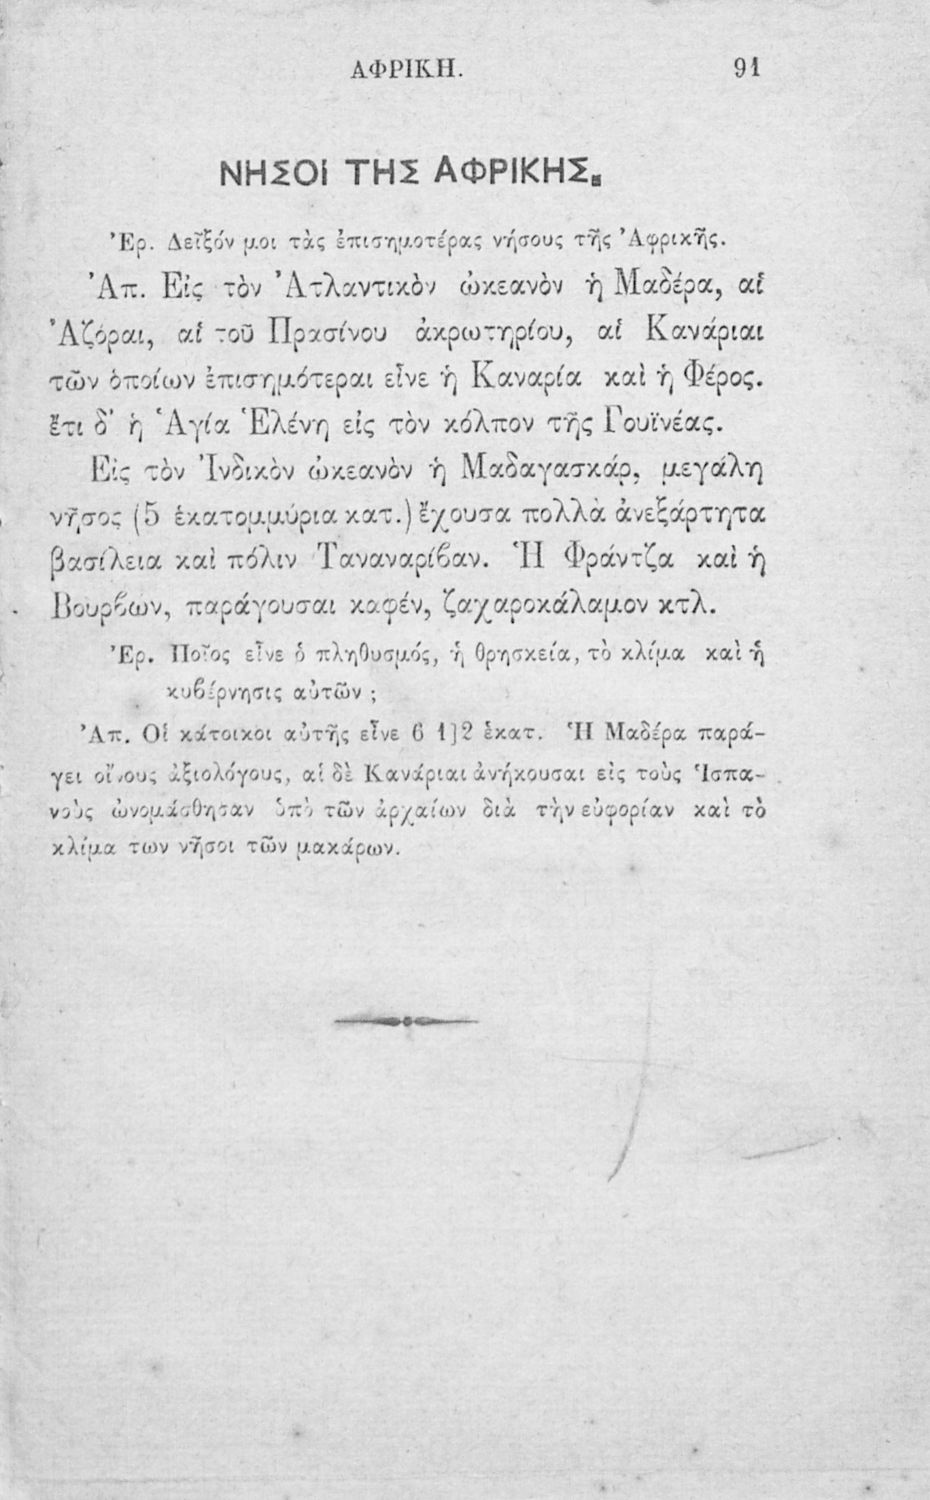 ΑΦΡΙΚΗ. 91
ΝΗΣΟΙ ΤΗΣ ΑΦΡΙΚΗΣ.
Ἐρ. Δεῖξόν μοι τὰς ἐπισημοτέρας νήσους τῆς Ἀφρικῆς.
Ἀπ. Εἰς τὸν Ἀτλαντικὸν ὠκεανὸν ἡ Μαδέρα, αἱ
Ἀζόραι, αἱ τοῦ Πρασίνου ἀκρωτηρίου, αἱ Κανάριαι
τῶν ὁποίων ἐπισημότεραι εἶνε ἡ Καναρία καὶ ἡ Φέρος.
ἔτι δ' ἡ Ἁγία Ἑλένη εἰς τὸν κόλπον τῆς Γουϊνέας.
Εἰς τὸν Ἰνδικὸν ὠκεανὸν ἡ Μαδαγασκάρ, μεγάλη
νῆσος (5 ἑκατομμύρια κατ.) ἔχουσα πολλὰ ἀνεξάρτητα
βασίλεια καὶ πόλιν Ταναναρίβαν. Ἡ Φράντζα καὶ ἡ
Βουρβων, παράγουσαι καφέν, ζαχαροκάλαμον κτλ.
Ἐρ. Ποῖος εἶνε ὁ πληθυσμός, ἡ θρησκεία, τὸ κλίμα καὶ ἡ
κυβέρνησις αὐτῶν ;
Ἀπ. Οἱ κάτοικοι αὐτῆς εἶνε 6 1]2 ἑκατ. Ἡ Μαδέρα παρά-
γει οἴνους ἀξιολόγους, αἱ δὲ Κανάριαι ἀνήκουσαι εἰς τοὺς Ἱσπα-
νοὺς ὠνομάσθησαν ὑπὸ τῶν ἀρχαίων διὰ τὴν εὐφορίαν καὶ τὸ
κλίμα των νῆσοι τῶν μακάρων.